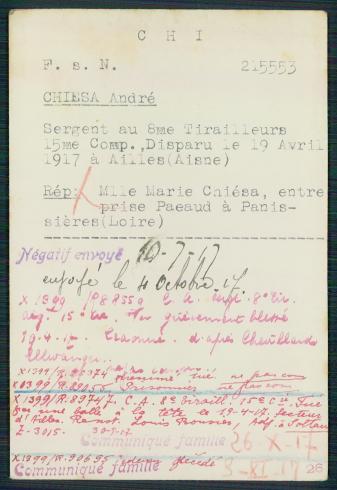 C H I
F. s. N. 215553
CHIESA André
Sergent au 8me Tirailleurs
15me Comp.,Disparu le 19 Avril
1917 à Ailles(Aisne)
Rép: Mlle Marie Chiésa, entre
prise Paeaud à Panis-
sières(Loire)
Négatif envoyé 10-7-17
envoyé le 4 Octobre 17.
X 1399 / P8835g C. A. 8e Tir.
15e Cie grièvement blessé
19-4-17 Craonne d'après Chevillard
Ellwangen.
X 1399/R.
X 1399/R. Prisonniers ne pas com
X 1399/R.89747. C.A. 8e Tiraill. 15e Cie. Tué
par une balle à la tête le 19-4-17, secteur
d'Ailles. Renst. Louis Adj. à Soltau
Z-3015. 30-7-17.
Communiqué famille 26-X-17
X 1399/R.90695 décédé
Communiqué famille 3-XI-17 26